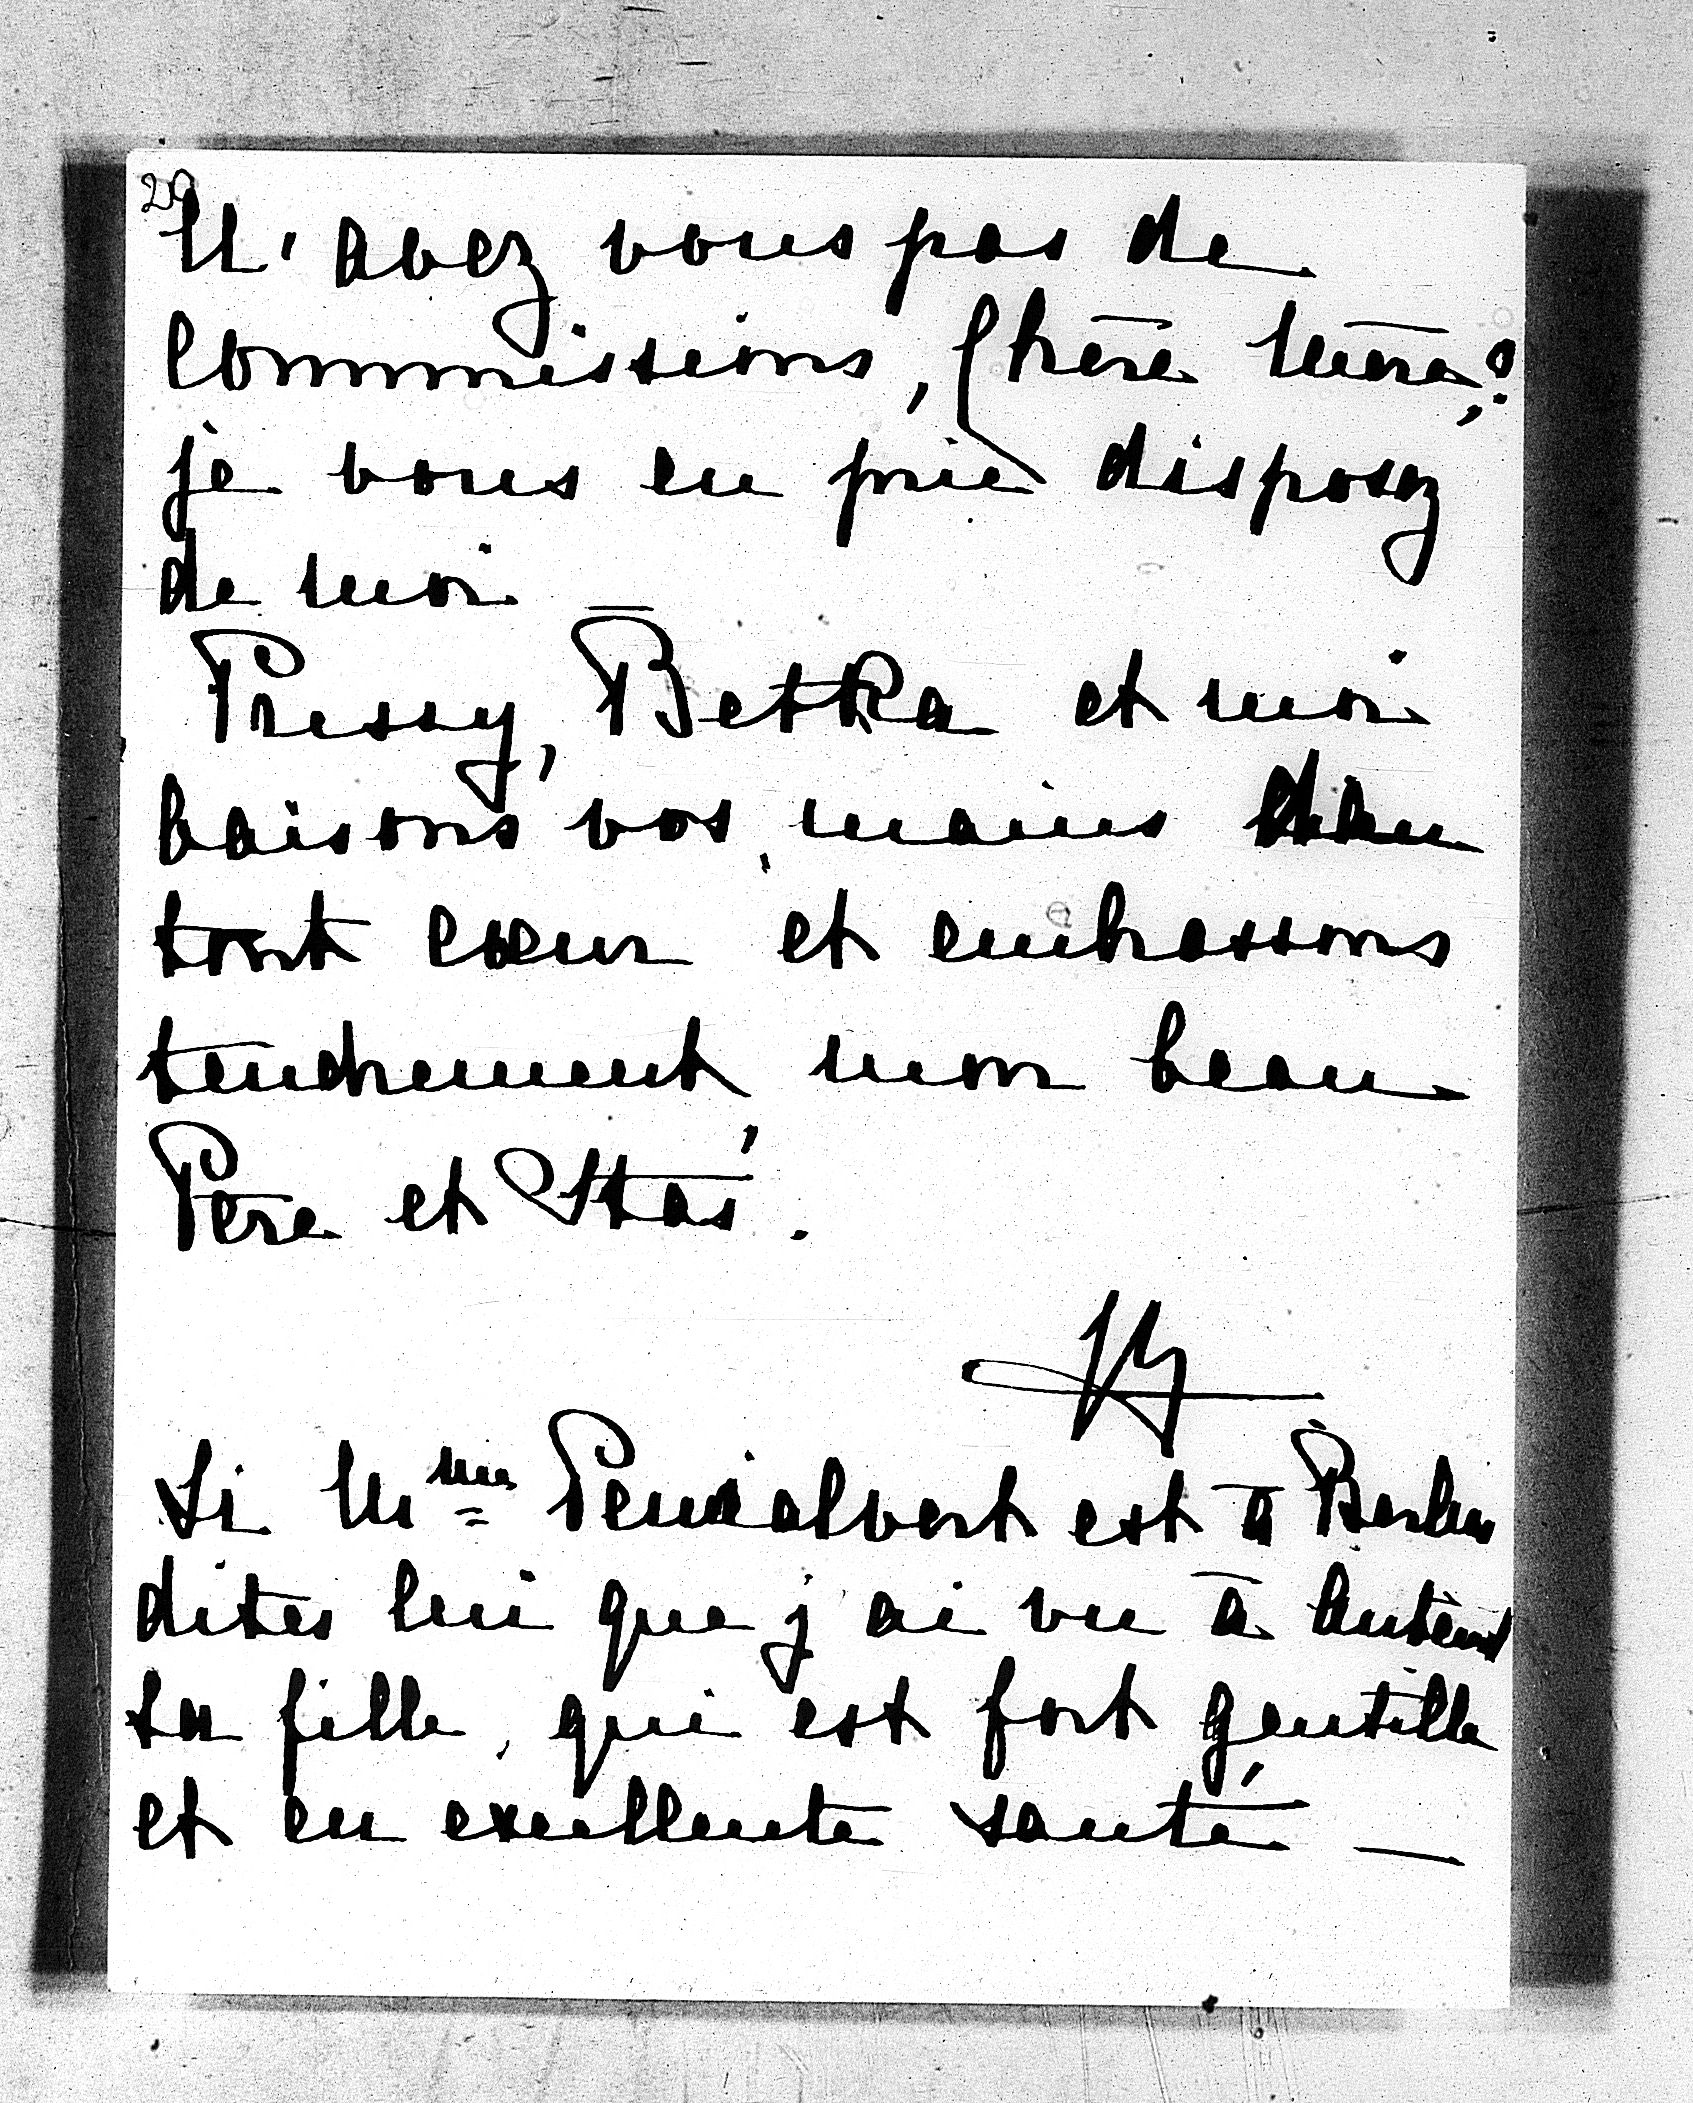 29
N'avez vous pas de
commissions, Chère Mère,?
je vous en prie disposez
de moi —
Pressy, Betka et moi
baisons vos mains de
tout cœur et embrassons
tendrement mon beau
Père et Staś.
Si Mme Pennalvert est à Berlin
dites lui que j'ai vu à
sa fille, qui est fort gentille
et en excellente santé —